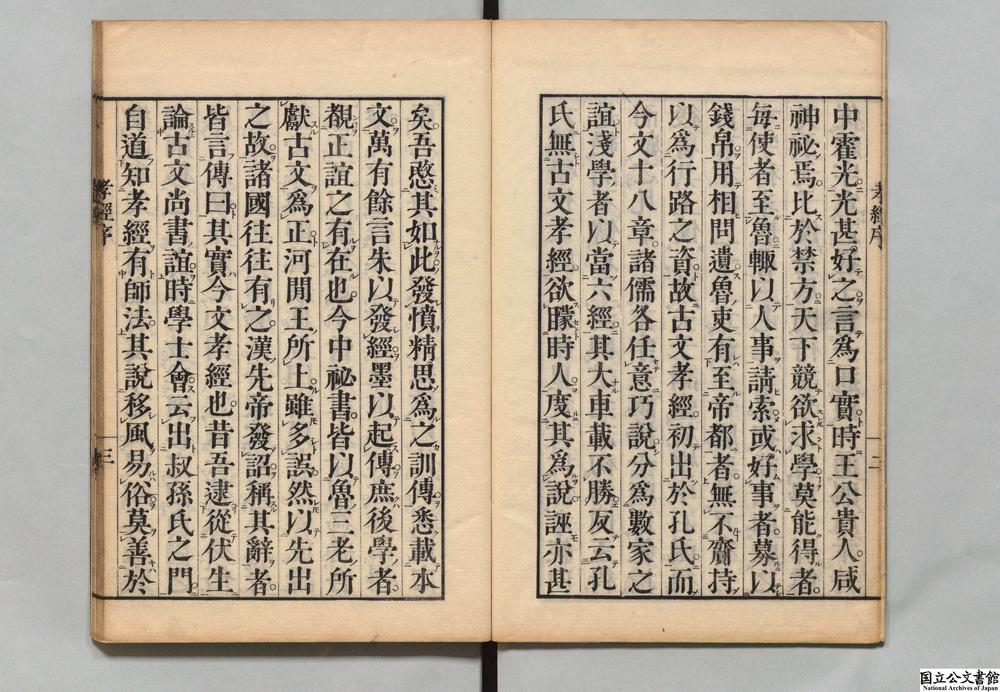 孝經序
二
中霍光光甚好之言爲口實時王公貴人咸
神祕焉比於禁方天下競欲求學莫能得者
每使者至魯輒以人事請索或好事者募以
錢帛用相問遺魯吏有至帝都者無不齎持
以爲行路之資故古文孝經初出於孔氏而
今文十八章諸儒各任意巧說分爲數家之
誼淺學者以當六經其大車載不勝反云孔
氏無古文孝經欲矇時人度其爲說誣亦甚
矣吾愍其如此發憤精思爲之訓傳悉載本
文萬有餘言朱以發經墨以起傳庶後學者
覩正誼之有在也今中祕書皆以魯三老所
獻古文爲正河間王所上雖多誤然以先出
之故諸國往往有之漢先帝發詔稱其辭者
皆言傳曰其實今文孝經也昔吾逮從伏生
論古文尚書誼時學士會云出叔孫氏之門
自道知孝經有師法其說移風易俗莫善於
孝經序
三
国立公文書館
National Archives of Japan